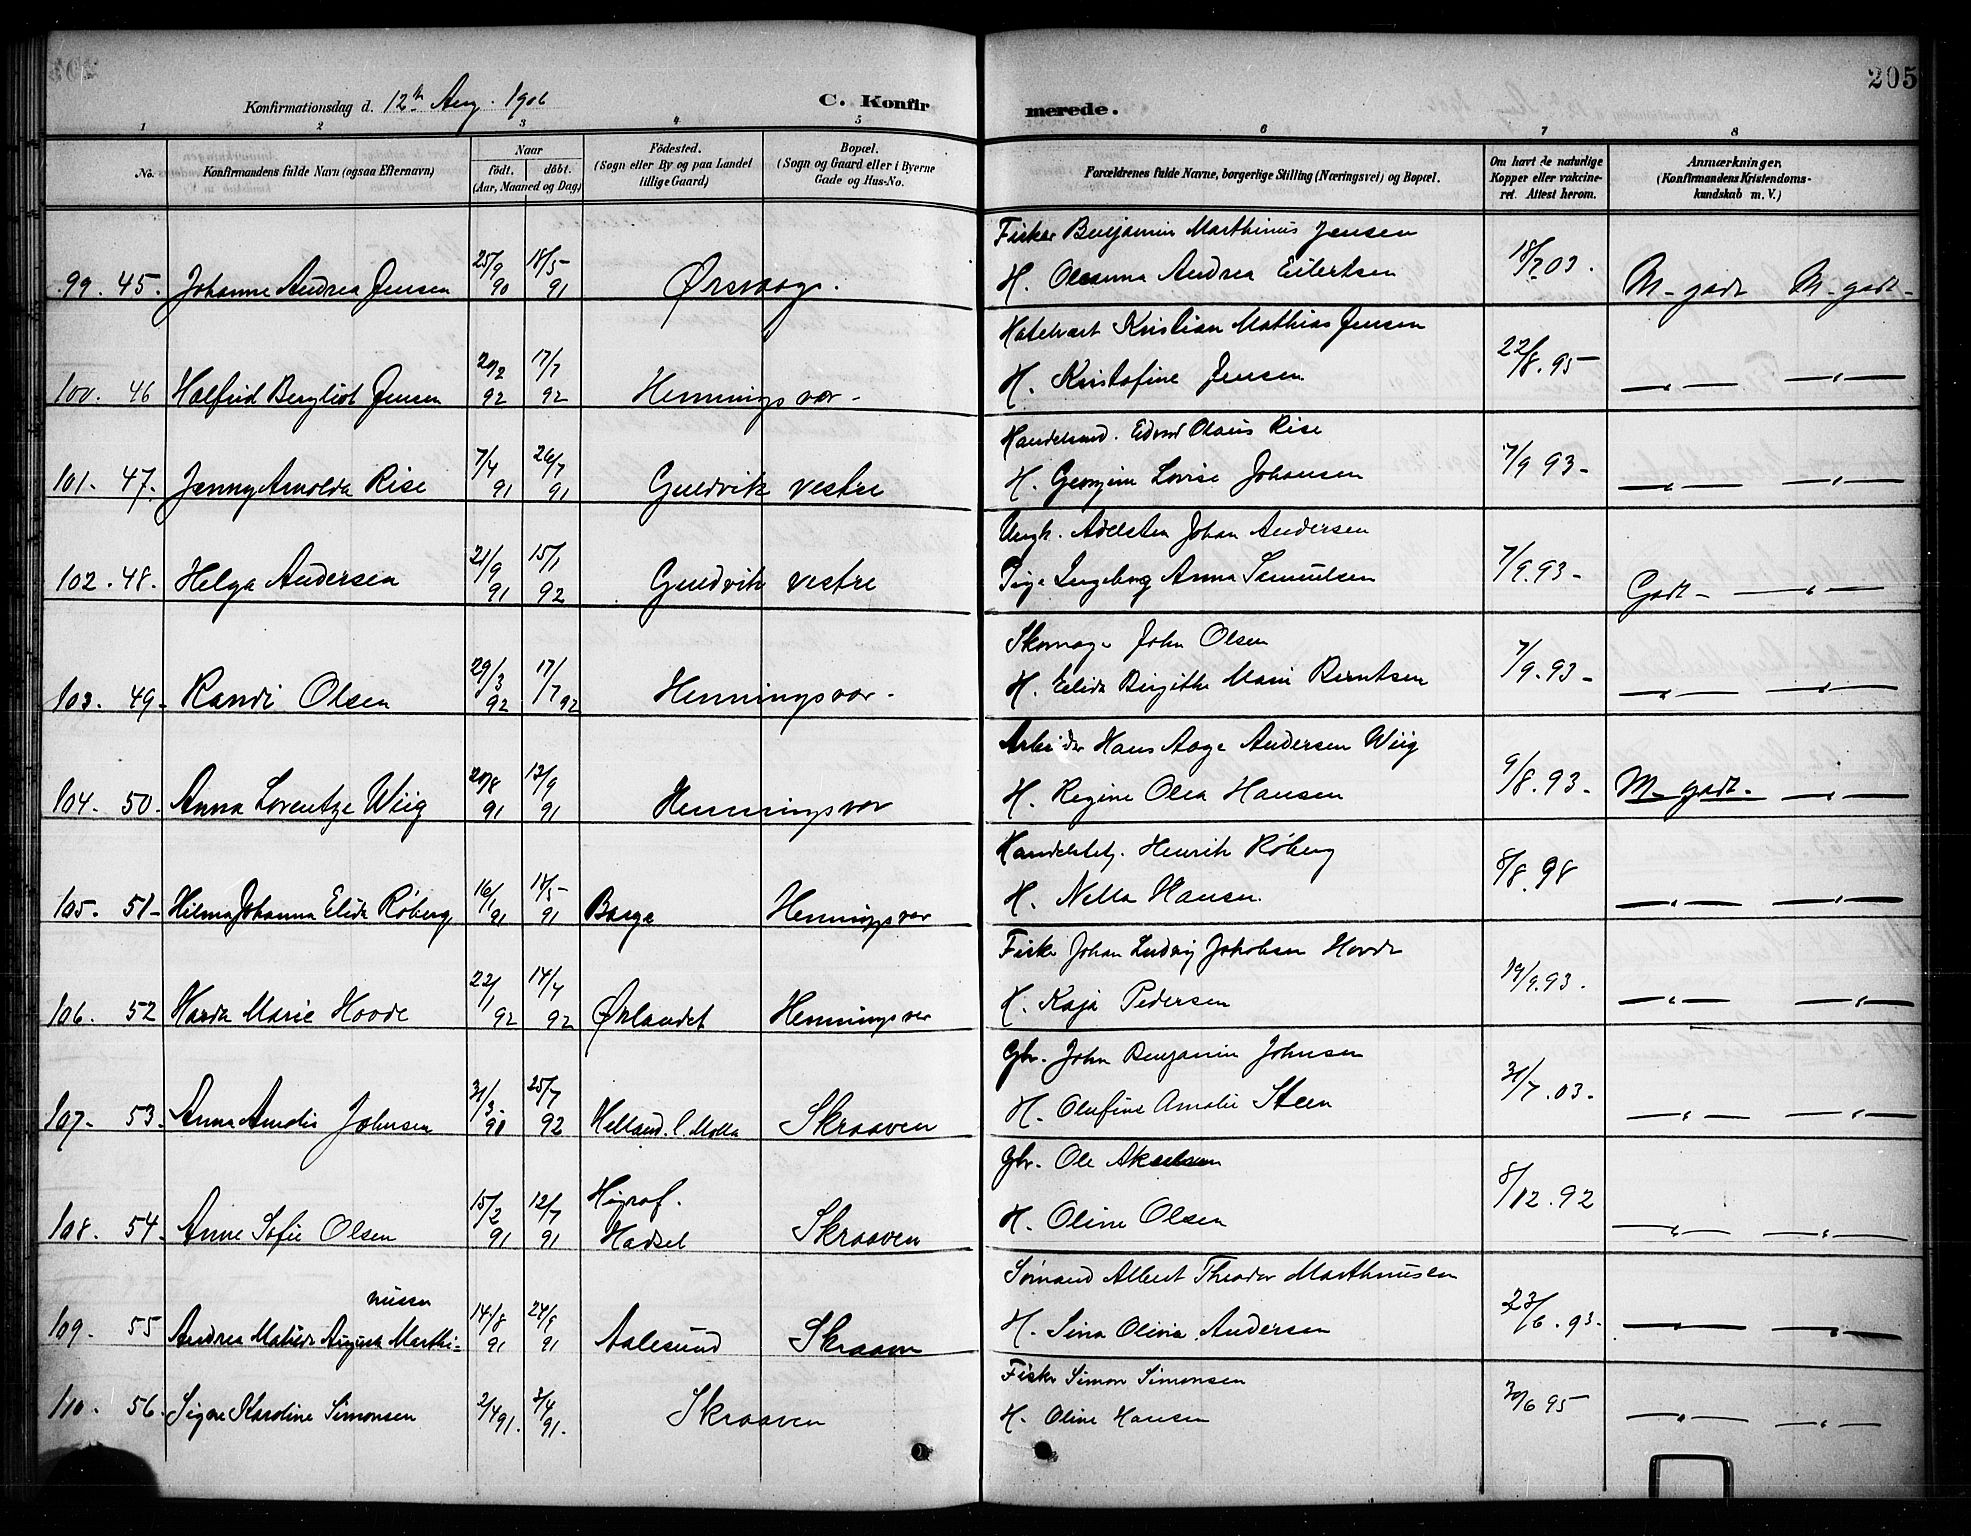 205
Konfirmationsdag d. 12th Aug. 1906
C. Konfirmerede.
1 2 3 4 5 6 7 8
No.
Konfirmandens fulde Navn (ogsaa Efternavn)
Naar
födt. döbt.
(Aar, Maaned og Dag)
Födested.
(Sogn eller By og paa Landet
tillige Gaard)
Bopæl.
(Sogn og Gaard eller i Byerne
Gade og Hus-No.
Forældrenes fulde Navne, borgerlige Stilling (Næringsvei) og Bopæl.
Om havt de naturlige
Kopper eller vakcine-
ret. Attest herom.
Anmærkninger,
(Konfirmandens Kristendoms-
kundskab m. V.)
99. 45. Johanne Andrea Jensen 25/9 90 18/5 91 Ørsvaag. Fisker Benjamin Marthinus Jensen
H. Oleanna Andrea Eilertsen 18/7 03. M- godt M- godt-
100. 46 Halfrid Bergliot Jensen 20/2 92 17/7 92 Henningsvær- Kristian Mathias Jensen
H. Kristofine Jensen 22/8. 95- —„— —„—
101. 47. Jenny Arnolda Rise 7/4 91 26/7 91 Guldvik vestre Handelsmd. Edvard Olaus Rise
H. Georgine Lovise Johansen 7/9 93- —„— —„—
102. 48. Helga Andersen 21/9 91 15/1 92 Guldvik vestre Ungk. Adelsten Johan Andersen
Pige Ingeborg Anna Samuelsen 7/9. 93- Godt- —„—
103. 49- Randi Olsen 29/3 92 17/7 92 Henningsvær- Skomager John Olsen
H. Elida Birgithe Marie Berntsen 7/9. 93- —„— —„—
104. 50. Anna Lorentze Wiig 20/8 91 13/9 91 Henningsvær Arbeider Hans Aage Andersen Wiig
H. Regine Olea Hansen 9/8. 93- M- godt- —„—
105. 51- Hilma Johanna Elida Røberg 16/1 91 18/5- 91 Henningsvær Handelsbetj. Henrik Røberg
H. Nella Hansen. 8/8. 98 —„— —„—
106. 52 Harda Marie Hovde 22/1 92 14/4 92 Ørlandet Henningsvær Fisker Johan Ludvig Jakobsen Hovde
H. Kaja Pedersen 19/9. 93. —„— —„—
107- 53. Anna Amalie Johnsen 31/3- 91 25/7 92 Helland. l. Molla Skraaven Gbr. John Benjamin Johnsen
H. Olufine Amalie Steen 31/7. 03- —„— —„—
108. 54. Anne Sofie Olsen 15/2 91 12/7 91 Hadsel Skraaven Gbr. Ole Akselsen
H. Oline Olsen 8/12. 92 —„— —„—
109. 55 Andrea Matilde Augusta Marthi-
nussen 14/8 91 24/9 91 Aalesund Skraaven Sömand Albert Theodor Marthinussen
H. Sina Olivia Andersen 23/6. 93- —„— —„—
110. 56. Signe Karoline Simonsen 2/4 91. 3/4 91. Skraaven Fisker Simon Simonsen
H. Oline Hansen 30/6 95 —„— —„—